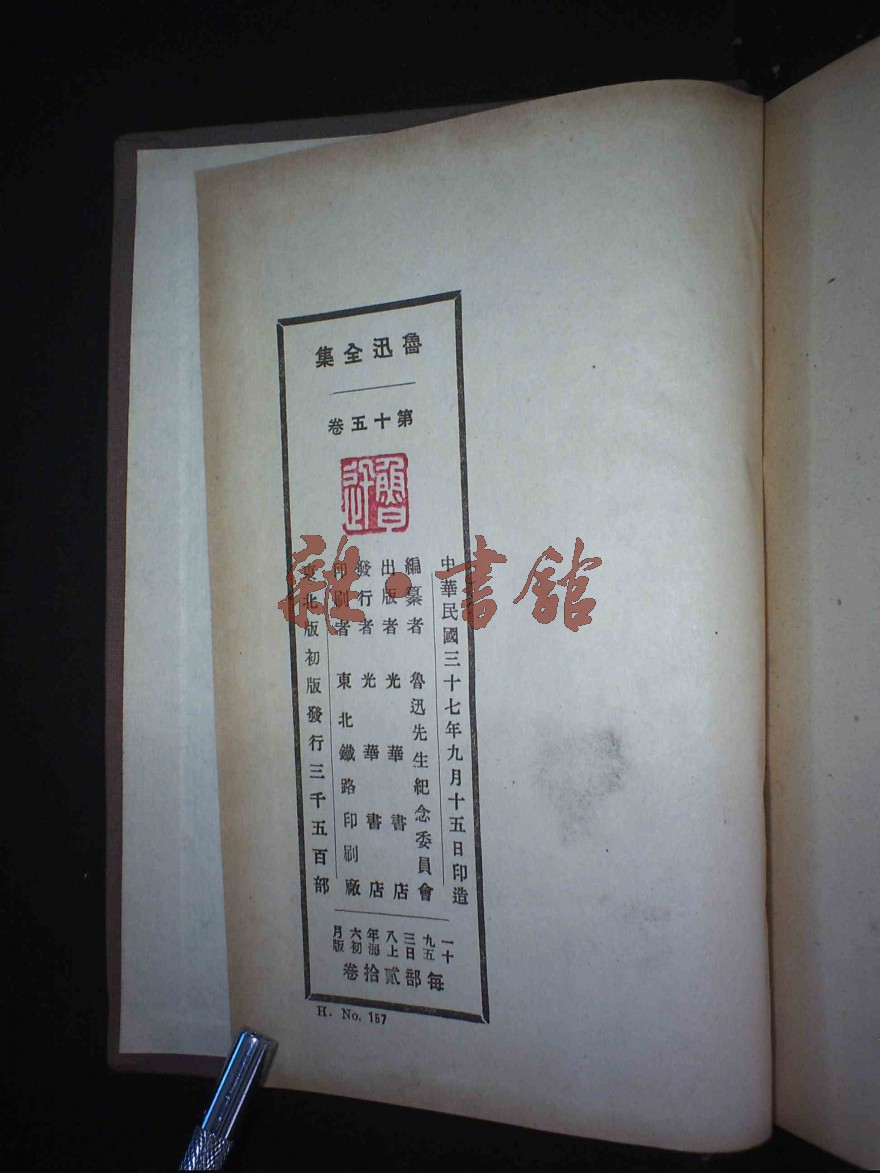 魯迅全集
第十五卷
魯迅
中華民國三十七年九月十五日印造
編纂者 魯迅先生紀念委員會
出版者 光華書店
發行者 光華書店
印刷者 東北鐵路印刷廠
東北版初版發行三千五百部
一九三八年六月
十五日上海初版
每部貳拾卷
H. No. 157
雜·書館